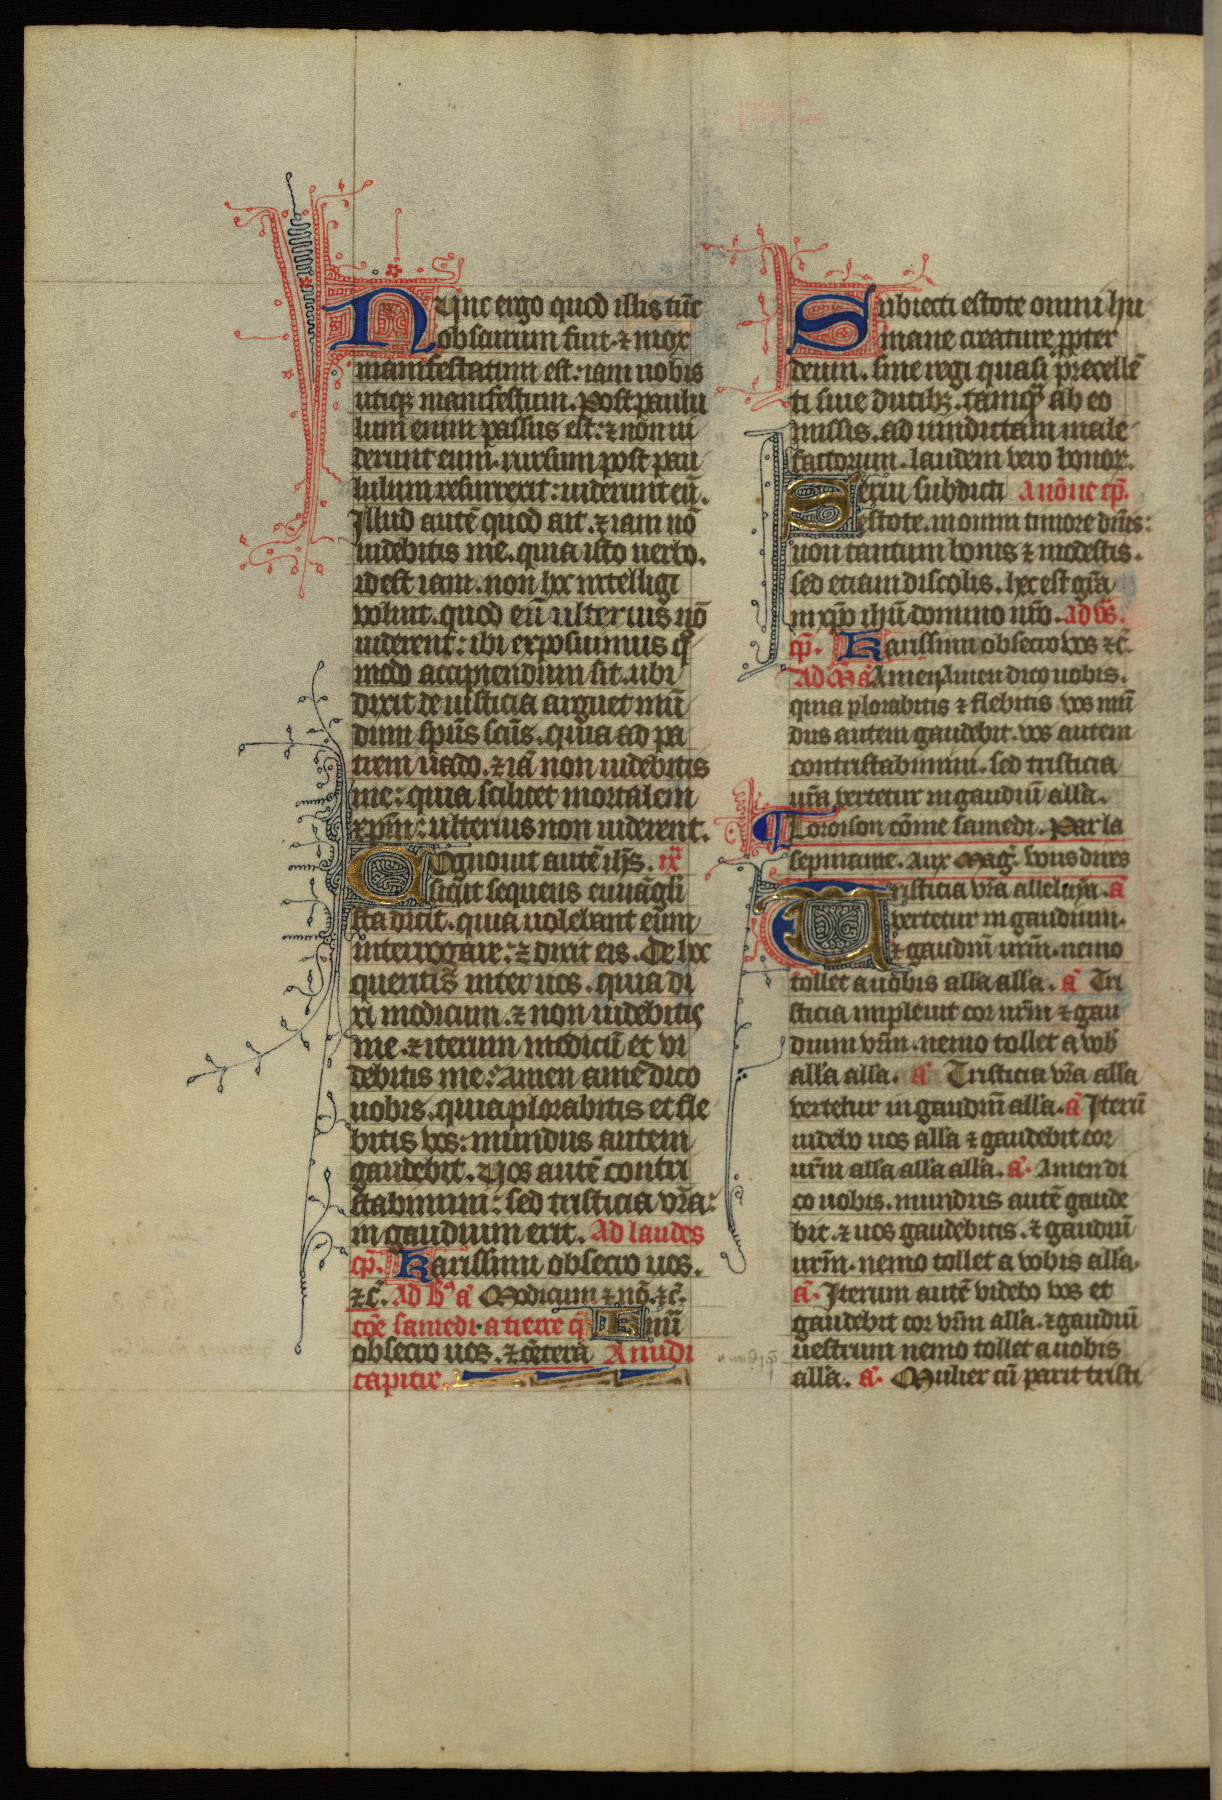 Nunc ergo quod illis tūc
obscurum fuit. ⁊ mox
manifestatum est: iam uobis
utiqȝ manifestum. Post paulu
lum enim passus est: ⁊ non ui
derunt eum. rursum post pau
lulum resurrexit: uiderunt eū.
Illud autē quod ait. ⁊ iam nō
uidebitis me. quia isto uerbo.
id est iam. non hec intelligi
voluit. quod eū ulterius nō
uiderent: ibi exposuimus qͦ
modo accipiendum sit. ubi
dixit de iusticia arguet mū
dum sp̄us sc̄us. quia ad pa
trem uado. ⁊ iā non uidebitis
me: quia scilicet mortalem
xp̄m: ulterius non uiderent.
Cognouit autē ih̄s. ix
sicut sequens euuāgeli
sta dicit. quia uolebant eum
interrogare: ⁊ dixit eis. De hoc
queritis inter uos. quia di
xi modicum. ⁊ non uidebitis
me. ⁊ iterum modicū et vi
debitis me: Amen amē dico
uobis. quia plorabitis et fle
bitis vos: mundus autem
gaudebit. Uos autē contri
stabimini: sed tristicia vr̄a:
in gaudium erit. Ad laudes
cp̄. Karissimi obsecro uos.
⁊c̄. Ad b̄ꝰ a̅ Modicum ⁊ nō. ⁊c̄.
cōe samedi. a tierce cp̄ Kmi
obsecro uos. ⁊ cetera A midi
capitre.
Subiecti estote omni hu
mane creature ꝓpter
deum. siue regi quasi precellē
ti siue ducibȝ. tamqͣ ab eo
missis. ad uindictam male
factorum. laudem vero bonor.
Serui subditi A nōne cp̄.
estote. in omni timore dn̄is:
non tantum bonis ⁊ modestis.
sed etiam discolis. hec est gr̄a
in xp̄o ih̄u domino nr̄o. ad vs̄.
cp̄. Karissimi obsecro vos ⁊c̄.
Ad M̄ a̅ Amen Amen dico uobis.
quia plorabitis ⁊ flebitis vos mū
dus autem gaudebit. vos autem
contristabimini. sed tristicia
ur̄a vertetur in gaudiū all̄a.
Loroison cōme samedi. Par la
sepmaine. Aux Mag̅. vous dires
Tristicia vr̄a alleluya. a̅
vertetur in gaudium.
⁊ gaudiū urm̄. nemo
tollet a uobis all̄a all̄a. a̅ Tri
sticia impleuit cor urm̄ ⁊ gau
dium vrm̄. nemo tollet a vob̄
all̄a all̄a. a̅ Tristicia vr̄a all̄a
vertetur in gaudiū all̄a. a̅ Iterū
uidebo uos all̄a ⁊ gaudebit cor
urm̄ all̄a all̄a all̄a. a̅. Amen di
co uobis. mundus autē gaude
bit. ⁊ uos gaudebitis. ⁊ gaudiū
urm̄. nemo tollet a vobis all̄a.
a̅. Iterum autē videbo vos et
gaudebit cor vrm̄ all̄a. ⁊ gaudiū
uestrum nemo tollet a uobis
all̄a. a̅. Mulier cū parit tristi